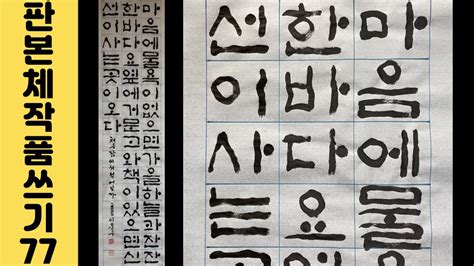 판본체작품쓰기77
마음에물욕이없으면가을하늘과잔잔
한바다요옆에거문고와책이있으면신
선이사는곳이오다
마음에물
한바다요
선이사는